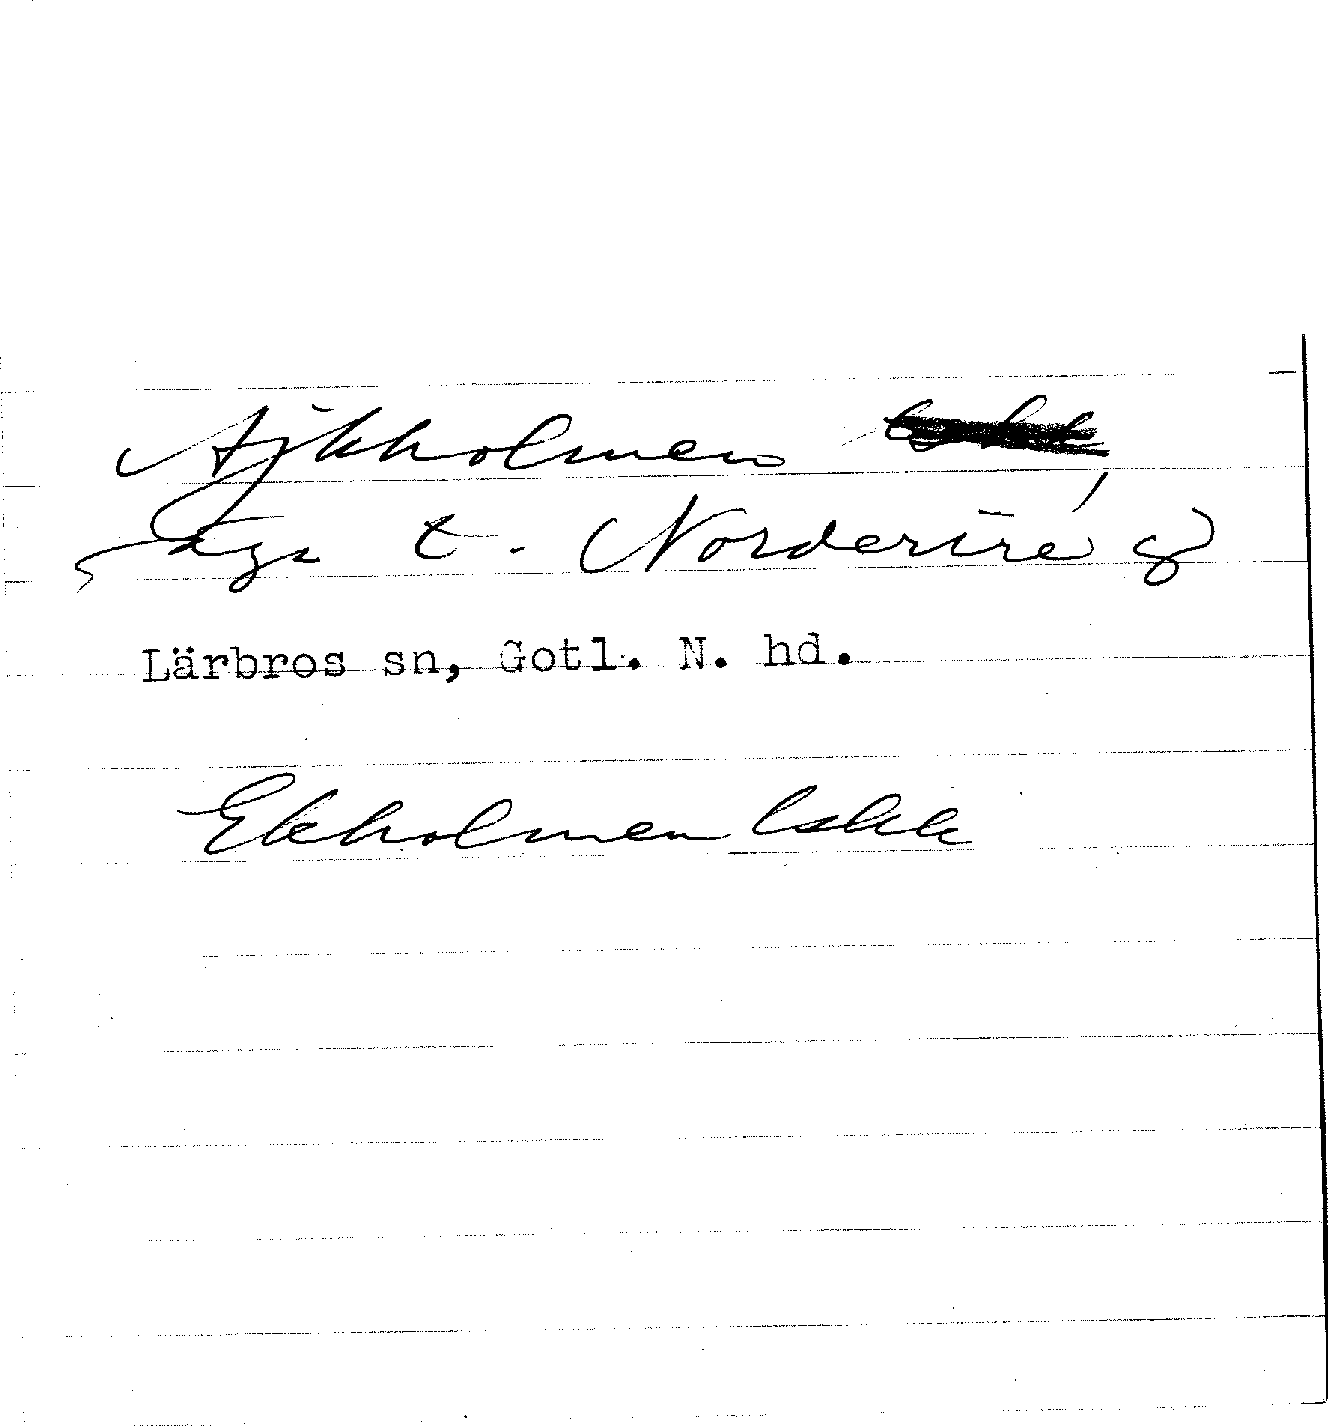 Ajkholmen
äga t. Norderire g
Lärbros sn, Gotl. N. hd.
Ekholmen lskk